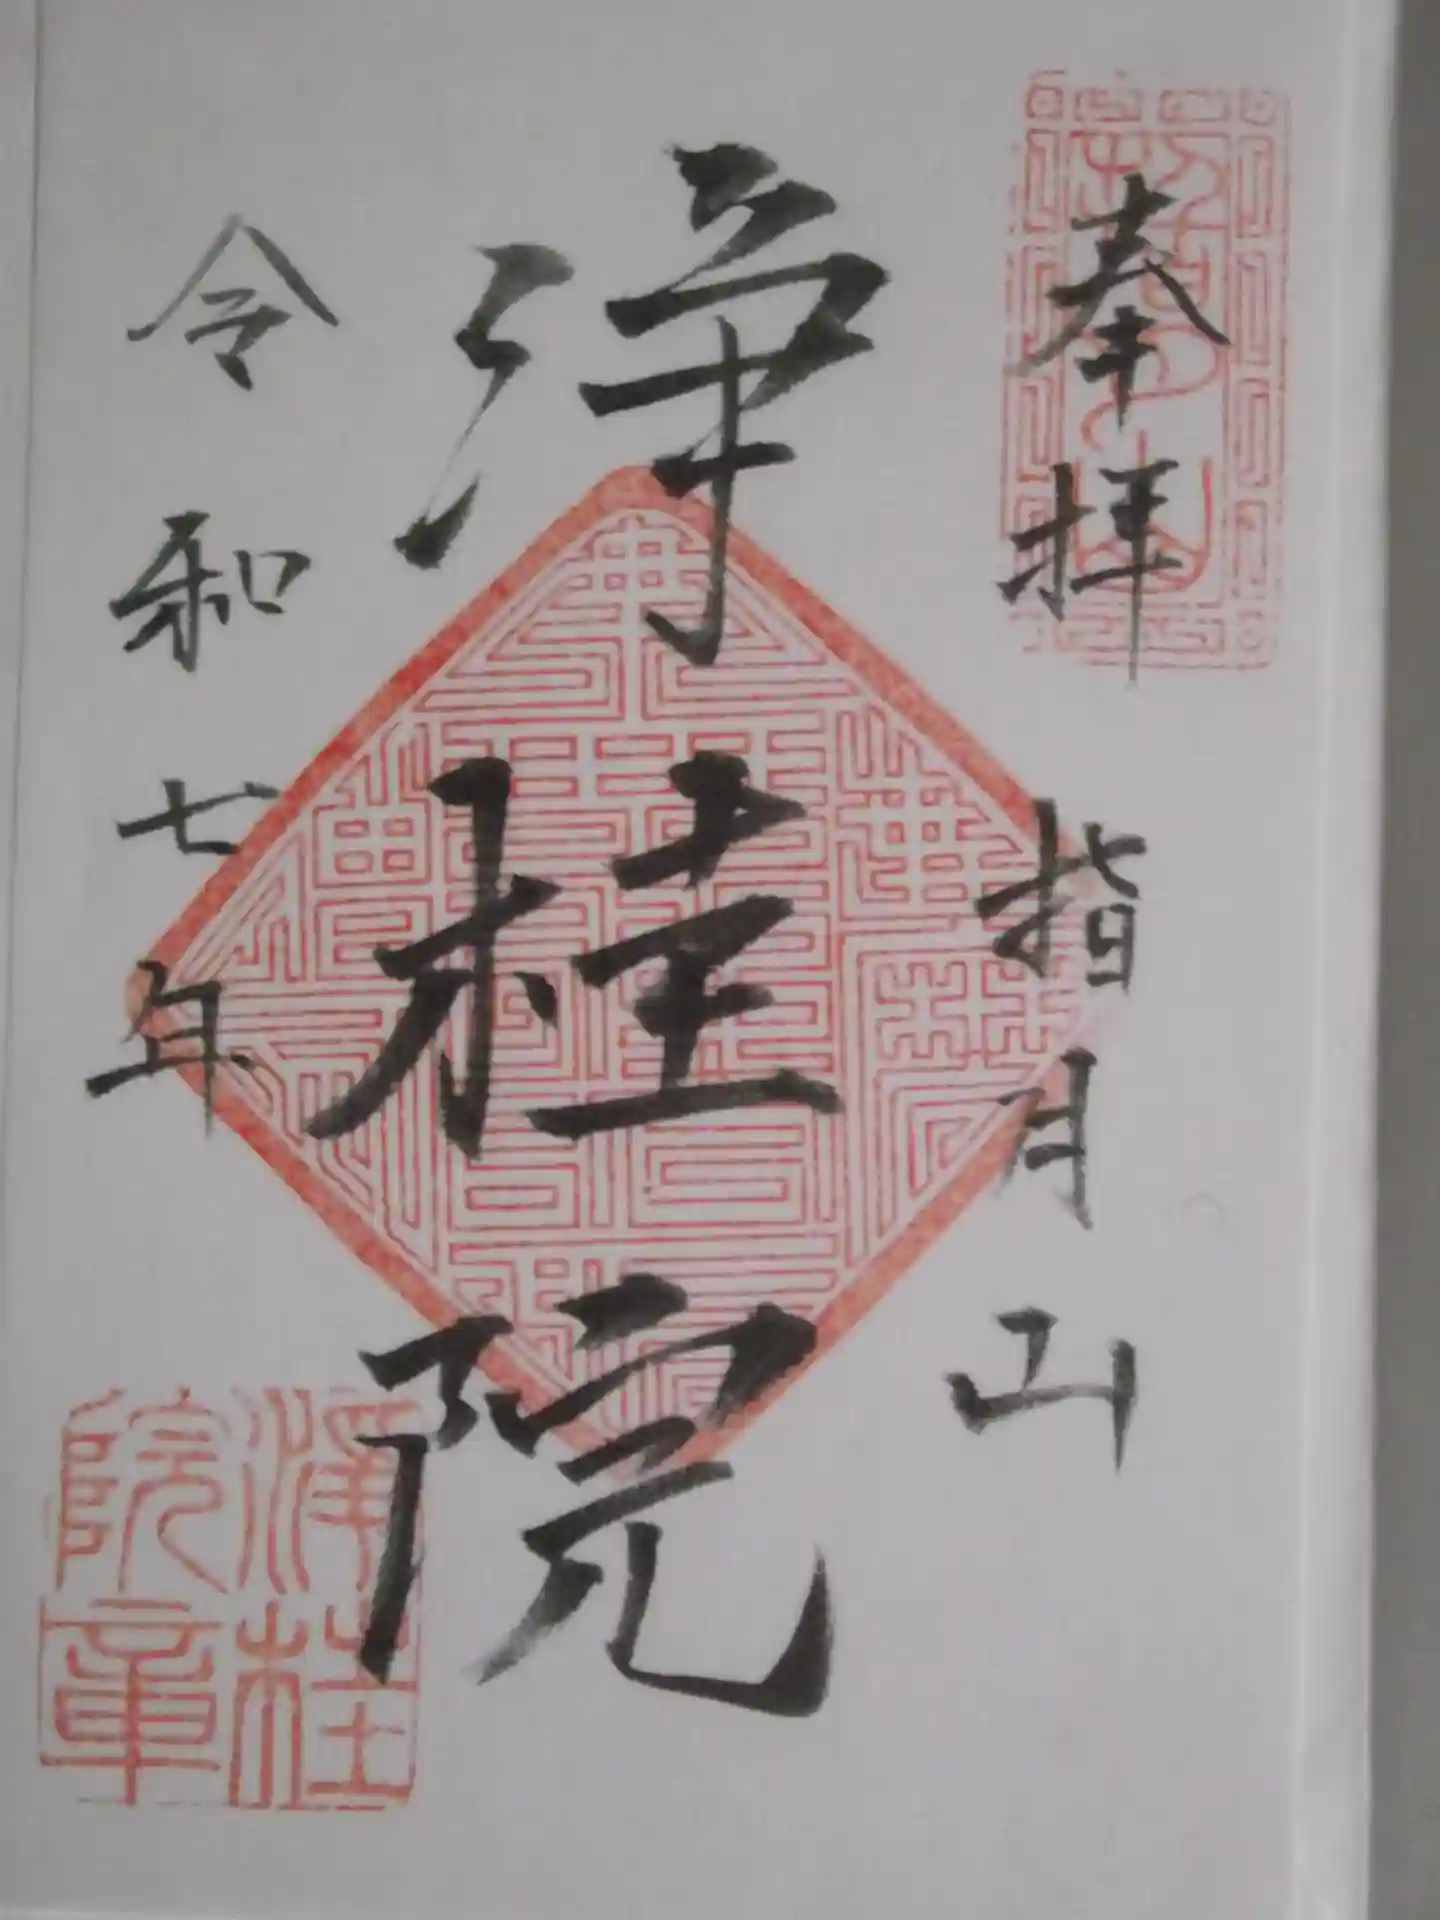 奉拝
指月山
浄桂院
令和七年
指月山
浄桂
院章